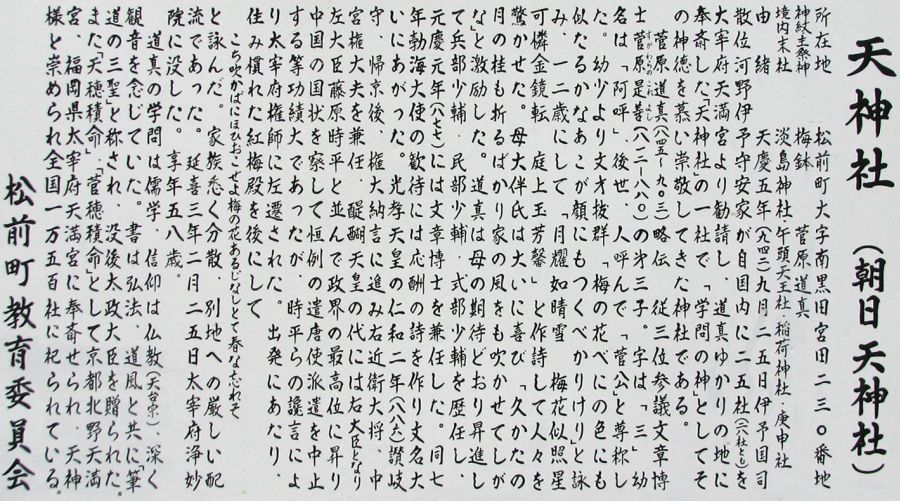 天神社（朝日天神社）
所在地　松前町大字南黒田宮田二三〇番地
神紋主祭神　梅鉢　菅原道真
境内末社　淡島神社・牛頭天王社・稲荷神社・庚申社
由緒　天慶五年（九四二）九月二五日伊予国司
散位河野伊予守安家が自国内に二五社（六社とも）を
大宰府天満宮より勧請し、道真ゆかりの地に
奉斎した「天神社」の一社で、「学問の神」としてそ
の神徳を慕い崇敬してきた神社である。
菅原道真（八四五〜九〇三）略伝　従三位参議文章博
士菅原是善（八一二〜八八〇）の第三子。字は「三」幼
名は「阿呼」、後世、人呼んで「菅公」と尊称し
た。幼少より文才抜群「梅の花べにの色にも
似たるかな あこが顔にもつくべかりけり」と詠
み、一二歳にして「月耀如晴雪　梅花似照星
可憐金鏡転　庭上玉芳馨」と作詩して人々を
驚かせた。母大伴氏は大いに喜び「久かたの
月の桂も折るばかり家の風をも吹かせてしが
な」と激励した。道真は母の期待どおり昇進し
て兵部少輔・民部少輔・式部少輔を歴任し、
元慶元年（八七七）には文章博士を兼任した。同七
年勃海大使の歓待には応酬の詩を作り文名大
いにあがった。光孝天皇の仁和二年（八八六）讃岐
守、帰京後、権大納言に進み右近衛大将、中
宮権大夫を兼任、醍醐天皇の代には右大臣となり
左大臣藤原時平と並んで政界の最高位に昇り
中国の国状を察して恒例の遣唐使派遣を中止
する等功績大であったが、時平らの讒言によ
り太宰府権師に左遷された。出発にあたり、
住み慣れた紅梅殿を後にして
こち吹かばにほひおこせよ梅の花あるじなしとて春な忘れそ
と詠んだ。家族悉く分散、別地への厳しい配
流であった。延喜三年二月二五日太宰府浄妙
院に没した。享年五八歳。
道真の学問は儒学、信仰は仏教（天台宗）、深く
観音を念じていた。書は弘法、道風と共に「筆
道の三聖」と称され、没後太政大臣を贈られた。
また「天穂積命」、「菅穂積命」として京都北野天満
宮、福岡県太宰府天満宮に奉斎せられ、天神
様と崇められ全国一万五百社に祀られている。
松前町教育委員会